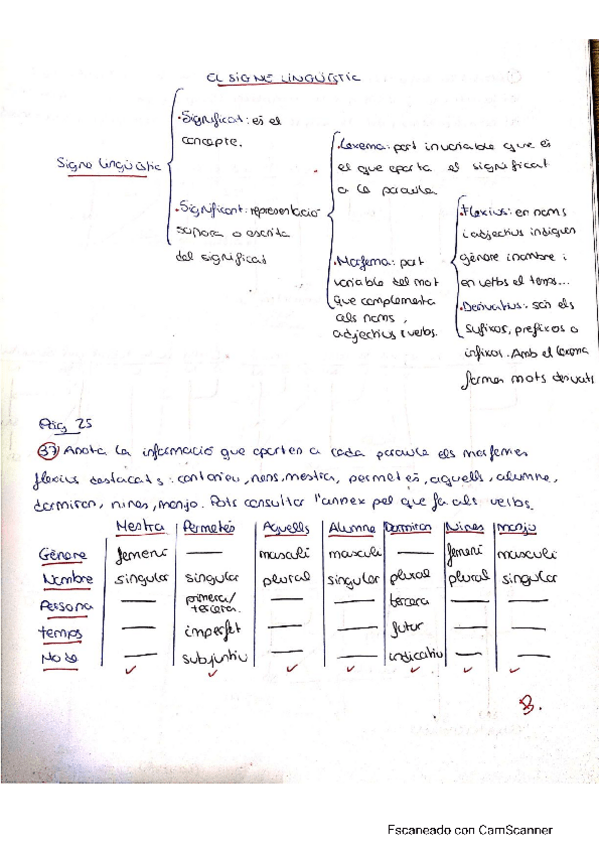 El SIGNE LINGÜÍSTIC
Signe lingüístic
·Significat: és el
concepte.
·Significant: representació
sonora o escrita
del significat
·Lexema: part invariable que és
el que aporta el significat
a la paraula
·Morfema: part
variable del mot
que complementa
als noms,
adjectius i verbs.
·Flexius: en noms
i adjectius indiquen
gènere i nombre i
en verbs el temps...
·Derivatius: són els
sufixos, prefixos o
infixos. Amb el lexema
formen mots derivats
Pàg 25
37) Anota la informació que aporten a cada paraula els morfemes
flexius destacats: cantarieu, nens, mestra, permetés, aquells, alumne,
dormiran, nines, monjo. Pots consultar l'annex pel que fa als verbs.
Mestra Permetés Aquells Alumne Dormiran Nines monjo
Gènere femení — masculí masculí — femení masculí
Nombre singular singular plural singular plural plural singular
Persona — primera/ tercera. — — tercera — —
temps — imperfet — — futur — —
Mode — subjuntiu — — indicatiu — —
B.
Escaneado con CamScanner